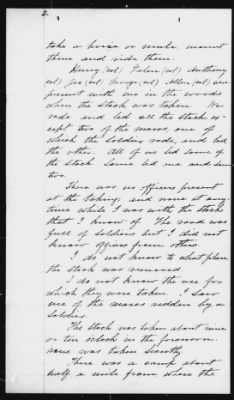 2.
take a horse or mule, mount
them and ride them.
Henry (col) (col) Anthony
(col) Joe (col) George (col) Allen (col) were
present with me in the woods
when the stock was taken. We
rode and led all the stock ex-
cept two of the mares, one of
which the soldiers rode, and led
the other. All of us led some of
the stock some led one and some
two.
There was no officers present
at the taking, and none at any-
time while I was with the stock
that I know of. The road was
full of soldiers but I did not
know officers from others.
I do not know to what place
the stock was removed
I do not know the use for
which they were taken. I saw
one of the mares ridden by a
soldier.
The stock was taken about nine
or ten oclock in the forenoon.
None was taken secretly
There was a camp about
half a mile from where the